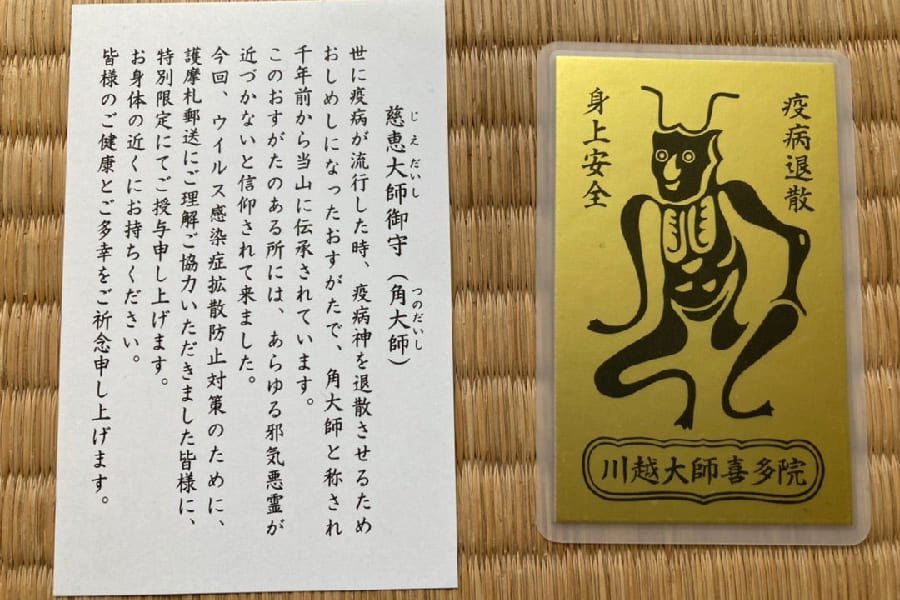 慈恵大師御守（角大師）
じえだいし
つのだいし
世に疫病が流行した時、疫病神を退散させるため
おしめしになったおすがたで、角大師と称され
千年前から当山に伝承されています。
このおすがたのある所には、あらゆる邪気悪霊が
近づかないと信仰されて来ました。
今回、ウイルス感染症拡散防止対策のために、
護摩札郵送にご理解ご協力いただきました皆様に、
特別限定にてご授与申し上げます。
お身体の近くにお持ちください。
皆様のご健康とご多幸をご祈念申し上げます。
疫病退散
身上安全
川越大師喜多院